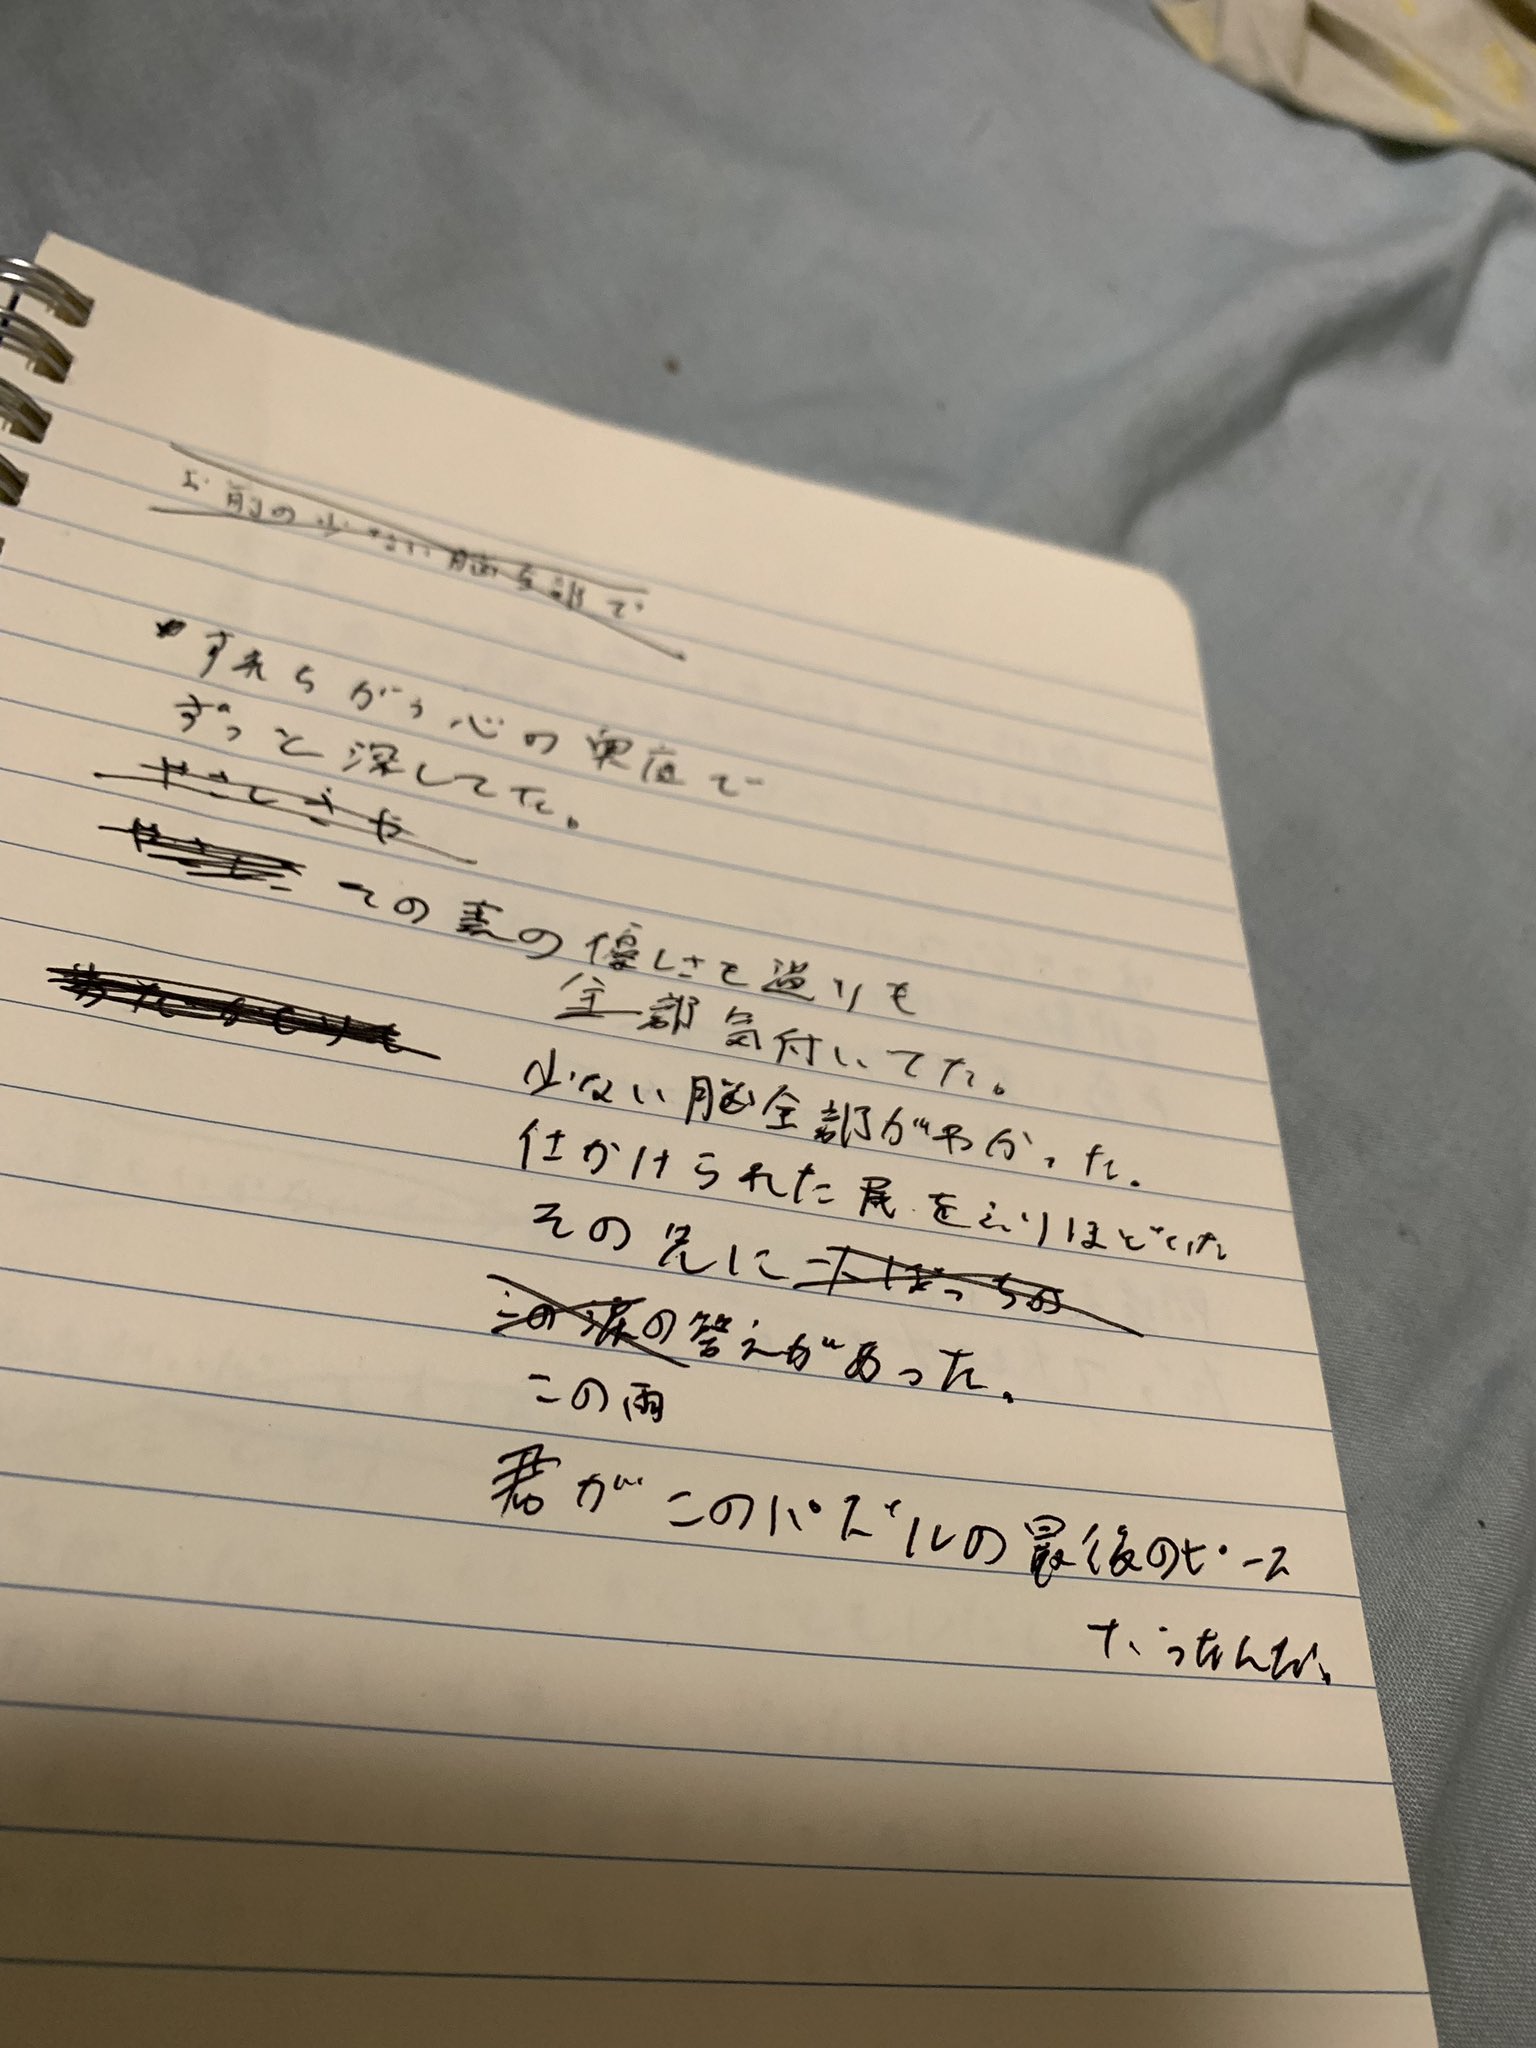 お前の少ない脳全部で
すれちがう心の奥底で
ずっと深してた。
やさしさや
その裏の優しさも過りも
全部気付いてた。
少ない脳全部がわかった。
仕かけられた尾をふりほどいた
その先に
この涙の答えがあった。
この雨
君がこのパズルの最後のピース
だったんだ。